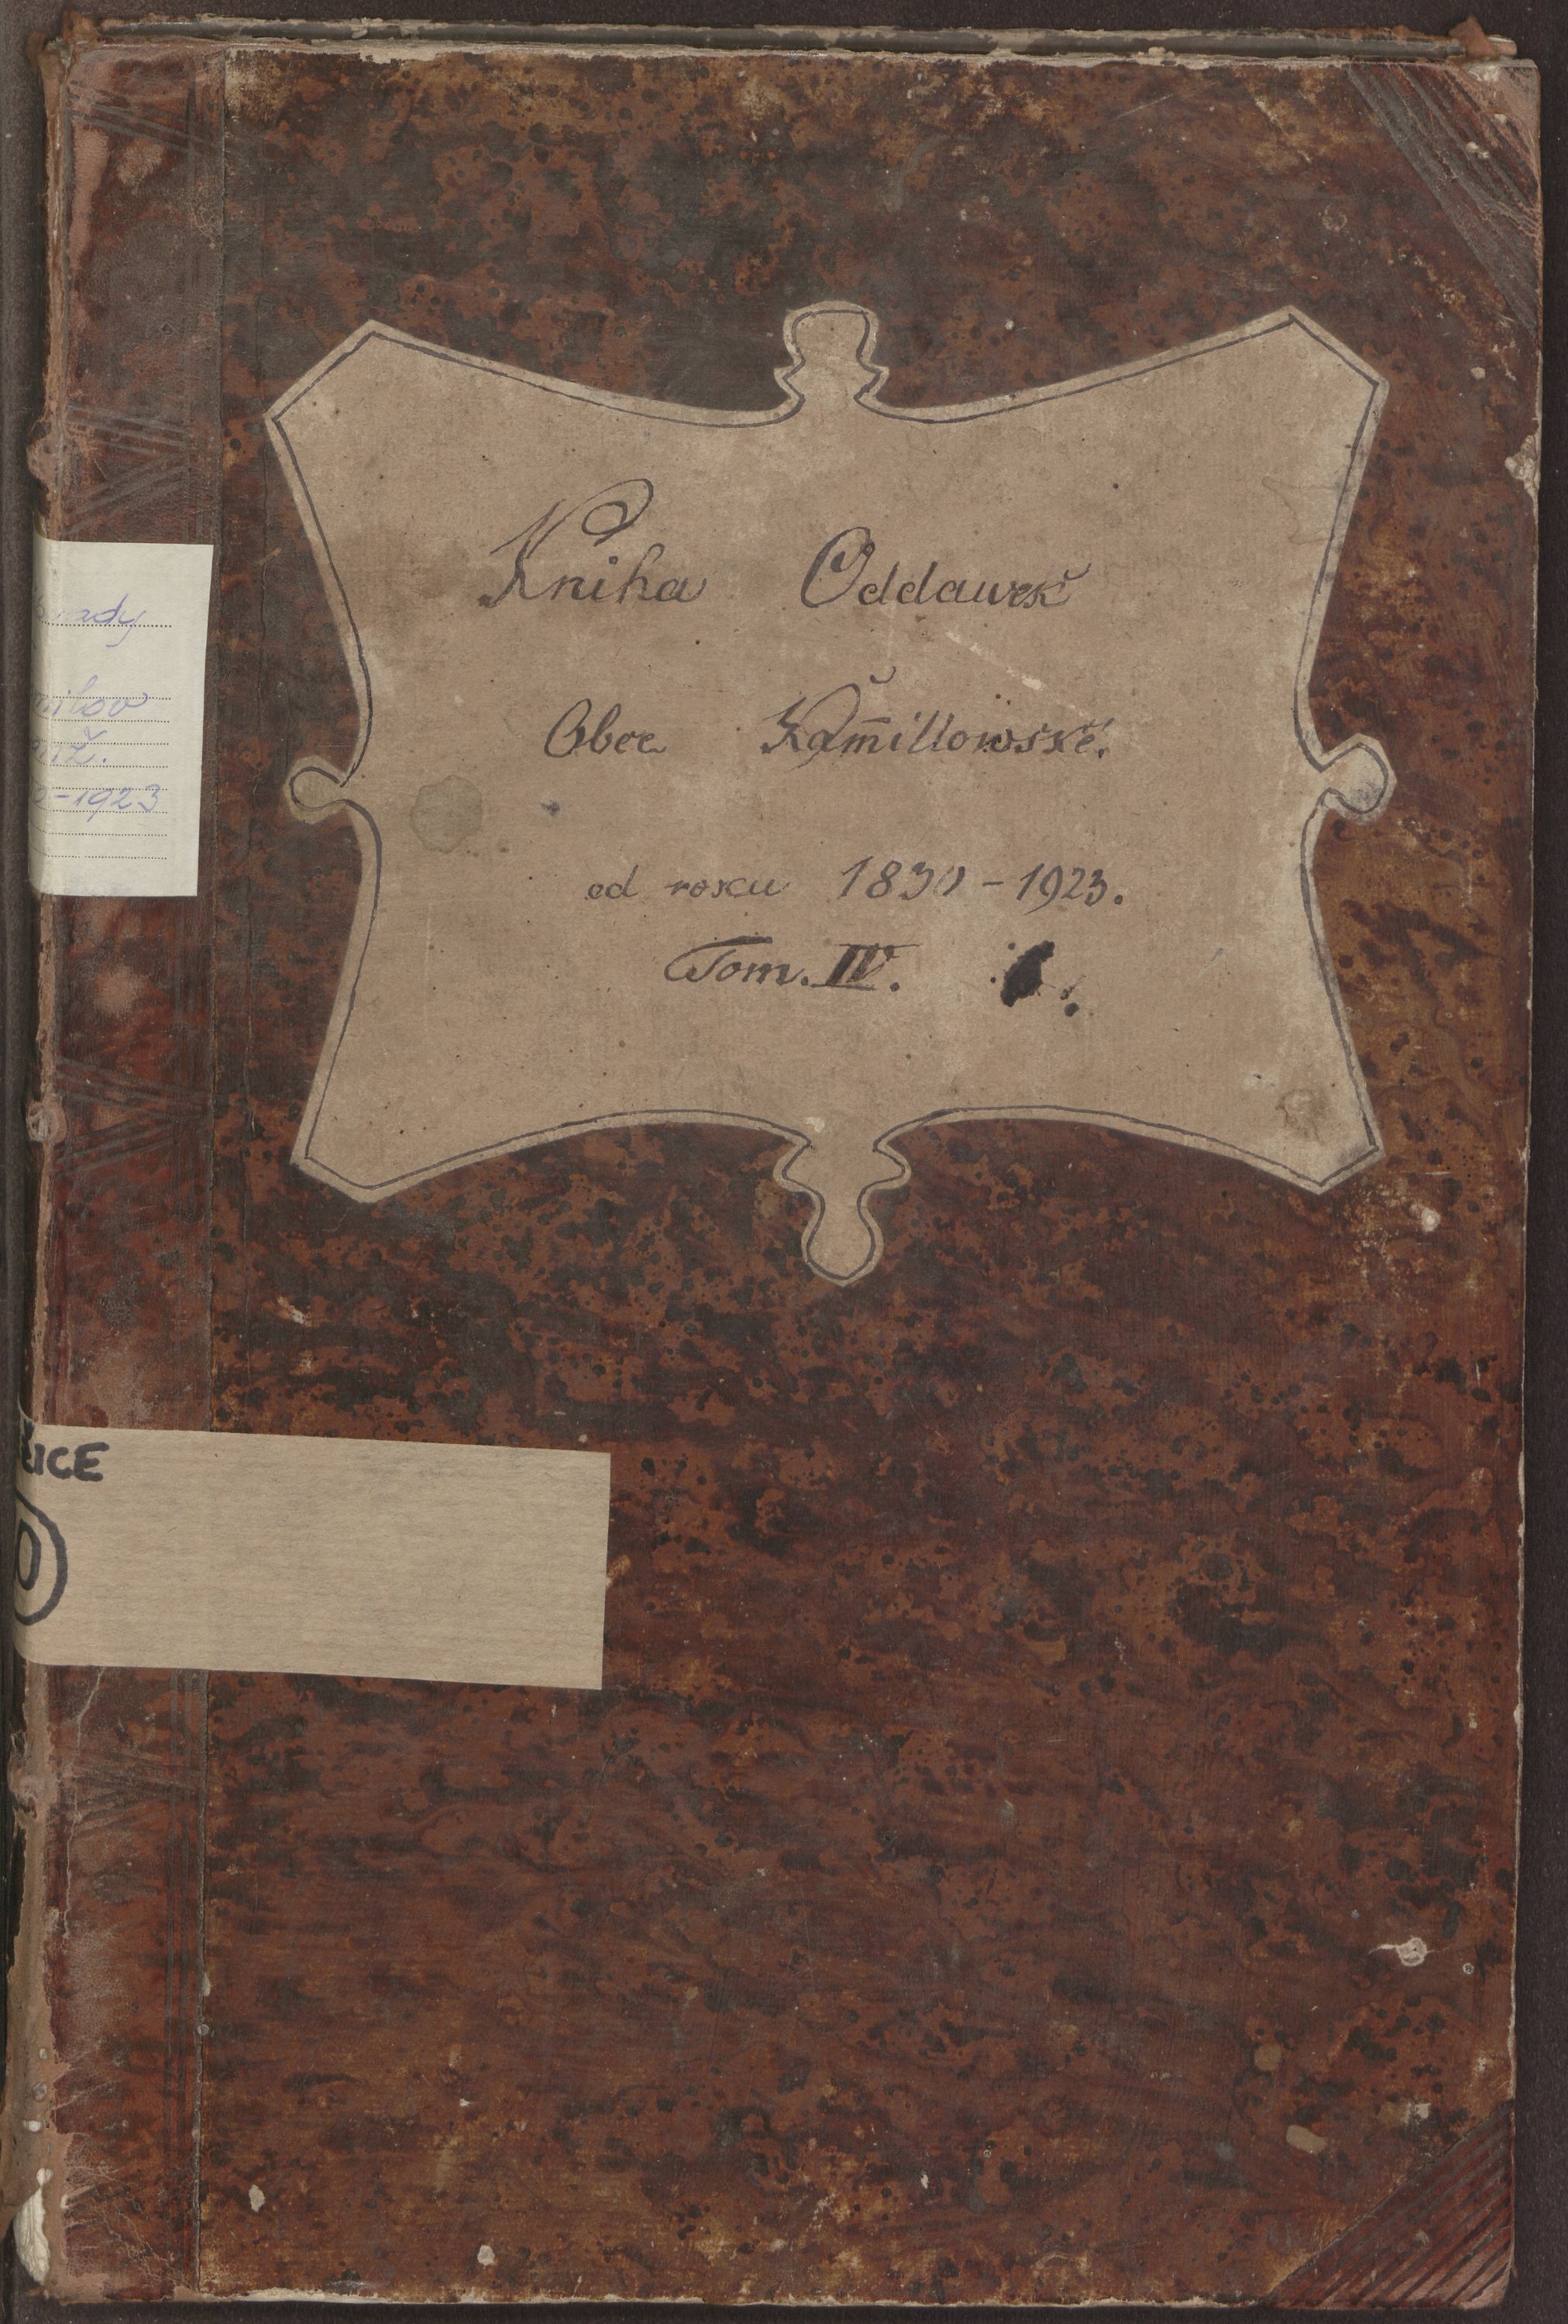 Kniha Oddawek
Obce Kamillowské.
od roku 1830-1923.
Tom. IV.
ady
milov
nž.
0-1923
ŽICE
0